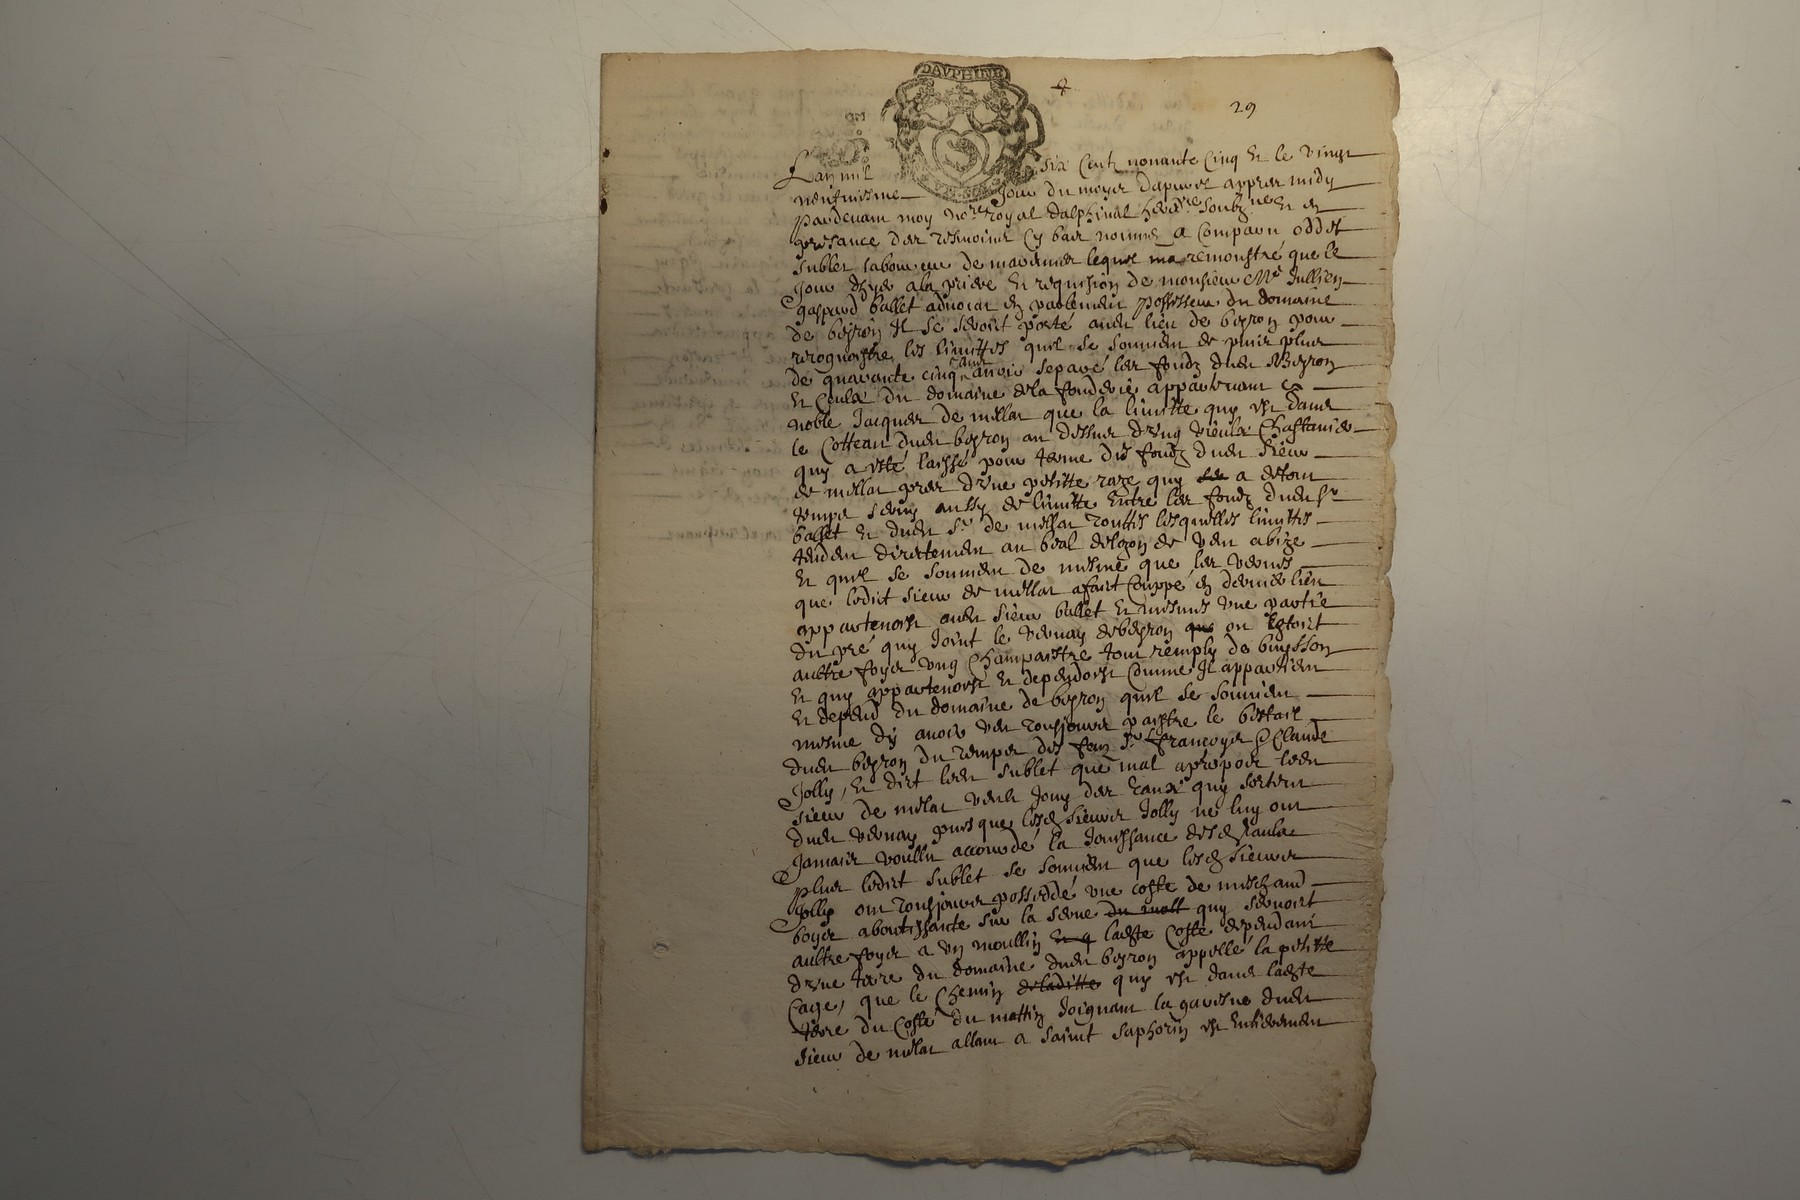 DAVPHINE
29
Lan mil six Centz nonante Cinq Et le vingt
neufuiesme Jour du moys dapuril appres midy
Pardeuant moy no.re royal dalphinal hered.re soubz.ne Et en
presance des tesmoins Cy bas nommes a Comparu oddet
sublet laboureur de mararnier lequel ma remonstré que le
Jour dhyer a la priere Et requision de monsieur Me Jullien
gaspard ballet aduocat en parlement possesseur du domaine
de beyron Il se seroit porté audit lieu de beyron pour
recognoistre les limittes quil se souuient de puis plus
de quarante cinq ans auoir separé les fondz dudit Beyron
Et Ceulx du domaine de la fonderie appartenant a
noble Jacques de mellat que la limitte quy est dans
le Cotteau dudit beyron au dessus dung vieulx Chastanier
quy a esté laissé pour terme des fondz dudit sieur
de mellat pres dune petitte raze quy a de tout
temps seruy aussy de limitte Entre les fondz dudit sr
ballet Et dudit sr de mellat touttes lesquelles limittes
tendent directement au beal de lozon de vent a bize
Et quil se souuient de mesme que les vernes
que ledict sieur de mellat a faict Couppé en dernier lieu
appartenoist audit sieur ballet Et mesmes vne partie
du pré quy Joint le vernay de beyron que ou Estoict
aultre foys vng Champaistre tout remply de buysson
Et quy appartenoist Et dependoist Comme Il appartient
Et depend du domaine de beyron quil se souuient
mesme dy auoir veu tousjours paistre le bestail
dudit beyron du temps des feuz srs francoys & Claude
Jolly, Et dict ledit sublet que mal apropos ledit
sieur de mellat veult Jouy des Eaux quy sortent
dudit vernay puis que lesd sieurs Jolly ne luy ont
Jamais voullu accordé la Jouissance desd Eaulx
plus ledict sublet se souuient que lesd sieurs
Jolly ont tousjours posseddé vne coste de meschant
boys aboutissante sur la serue du moll quy seruoist
aultre foys a vn moullin Et q ladite Coste dependant
dune terre du domaine dudit beyron appellé la petitte
Cage, que le Chemin de laditte quy est dans ladite
terre du Costé du mattin Joignant la garesne dudit
sieur de mellat allant a saint saphorin est Entierement